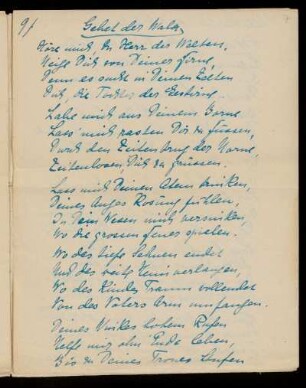 9)
7
Gebet der Wala.
Höre mich, Du Herr des Weltens,
Neige Dich von Deiner Firne,
Denn es sucht in Deinen Zelten
Dich, die Tochter der Gestirne.
Labe mich aus Deinem Borne
Lass' mich rasten Dir zu Füssen,
Durch den Zeitenkrug der Norne,
Zeitenloser, Dich zu grüssen.
Lass mich Deinen Atem trinken,
Deines Auges Rosung fühlen,
In Dein Wesen mich versinken,
Wo die grossen Feuer spielen.
Wo das tiefe Sehnen endet
Und das heisse Heimverlangen,
Wo des Kindes Traum vollendet
Von des Vaters Arm umfangen.
Deines Winkes hohem Rufen
Helfe mir ohn' Ende leben,
Bis zu Deines Trones Stufen